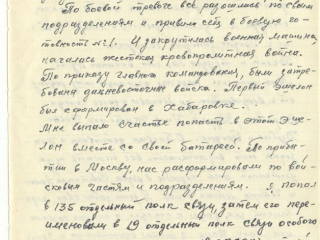 По боевой тревоге все разошлись по своим
подразделениям и привели сеть в боевую го-
товность №1. И закрутилась военная машина,
началась жестокая кровопролитная война.
По приказу главного командования, были затре-
бованы дальневосточные войска. Первый эшелон
был сформирован в Хабаровке.
Мне выпало счастье попасть в этот эше-
лон вместе со своей батареей. По прибы-
тии в Москву, нас расформировали по вой-
сковым частям и подразделениям. Я, попал
в 135 отдельный полк связи, затем его пере-
именовали в 19 отдельный полк связи особого